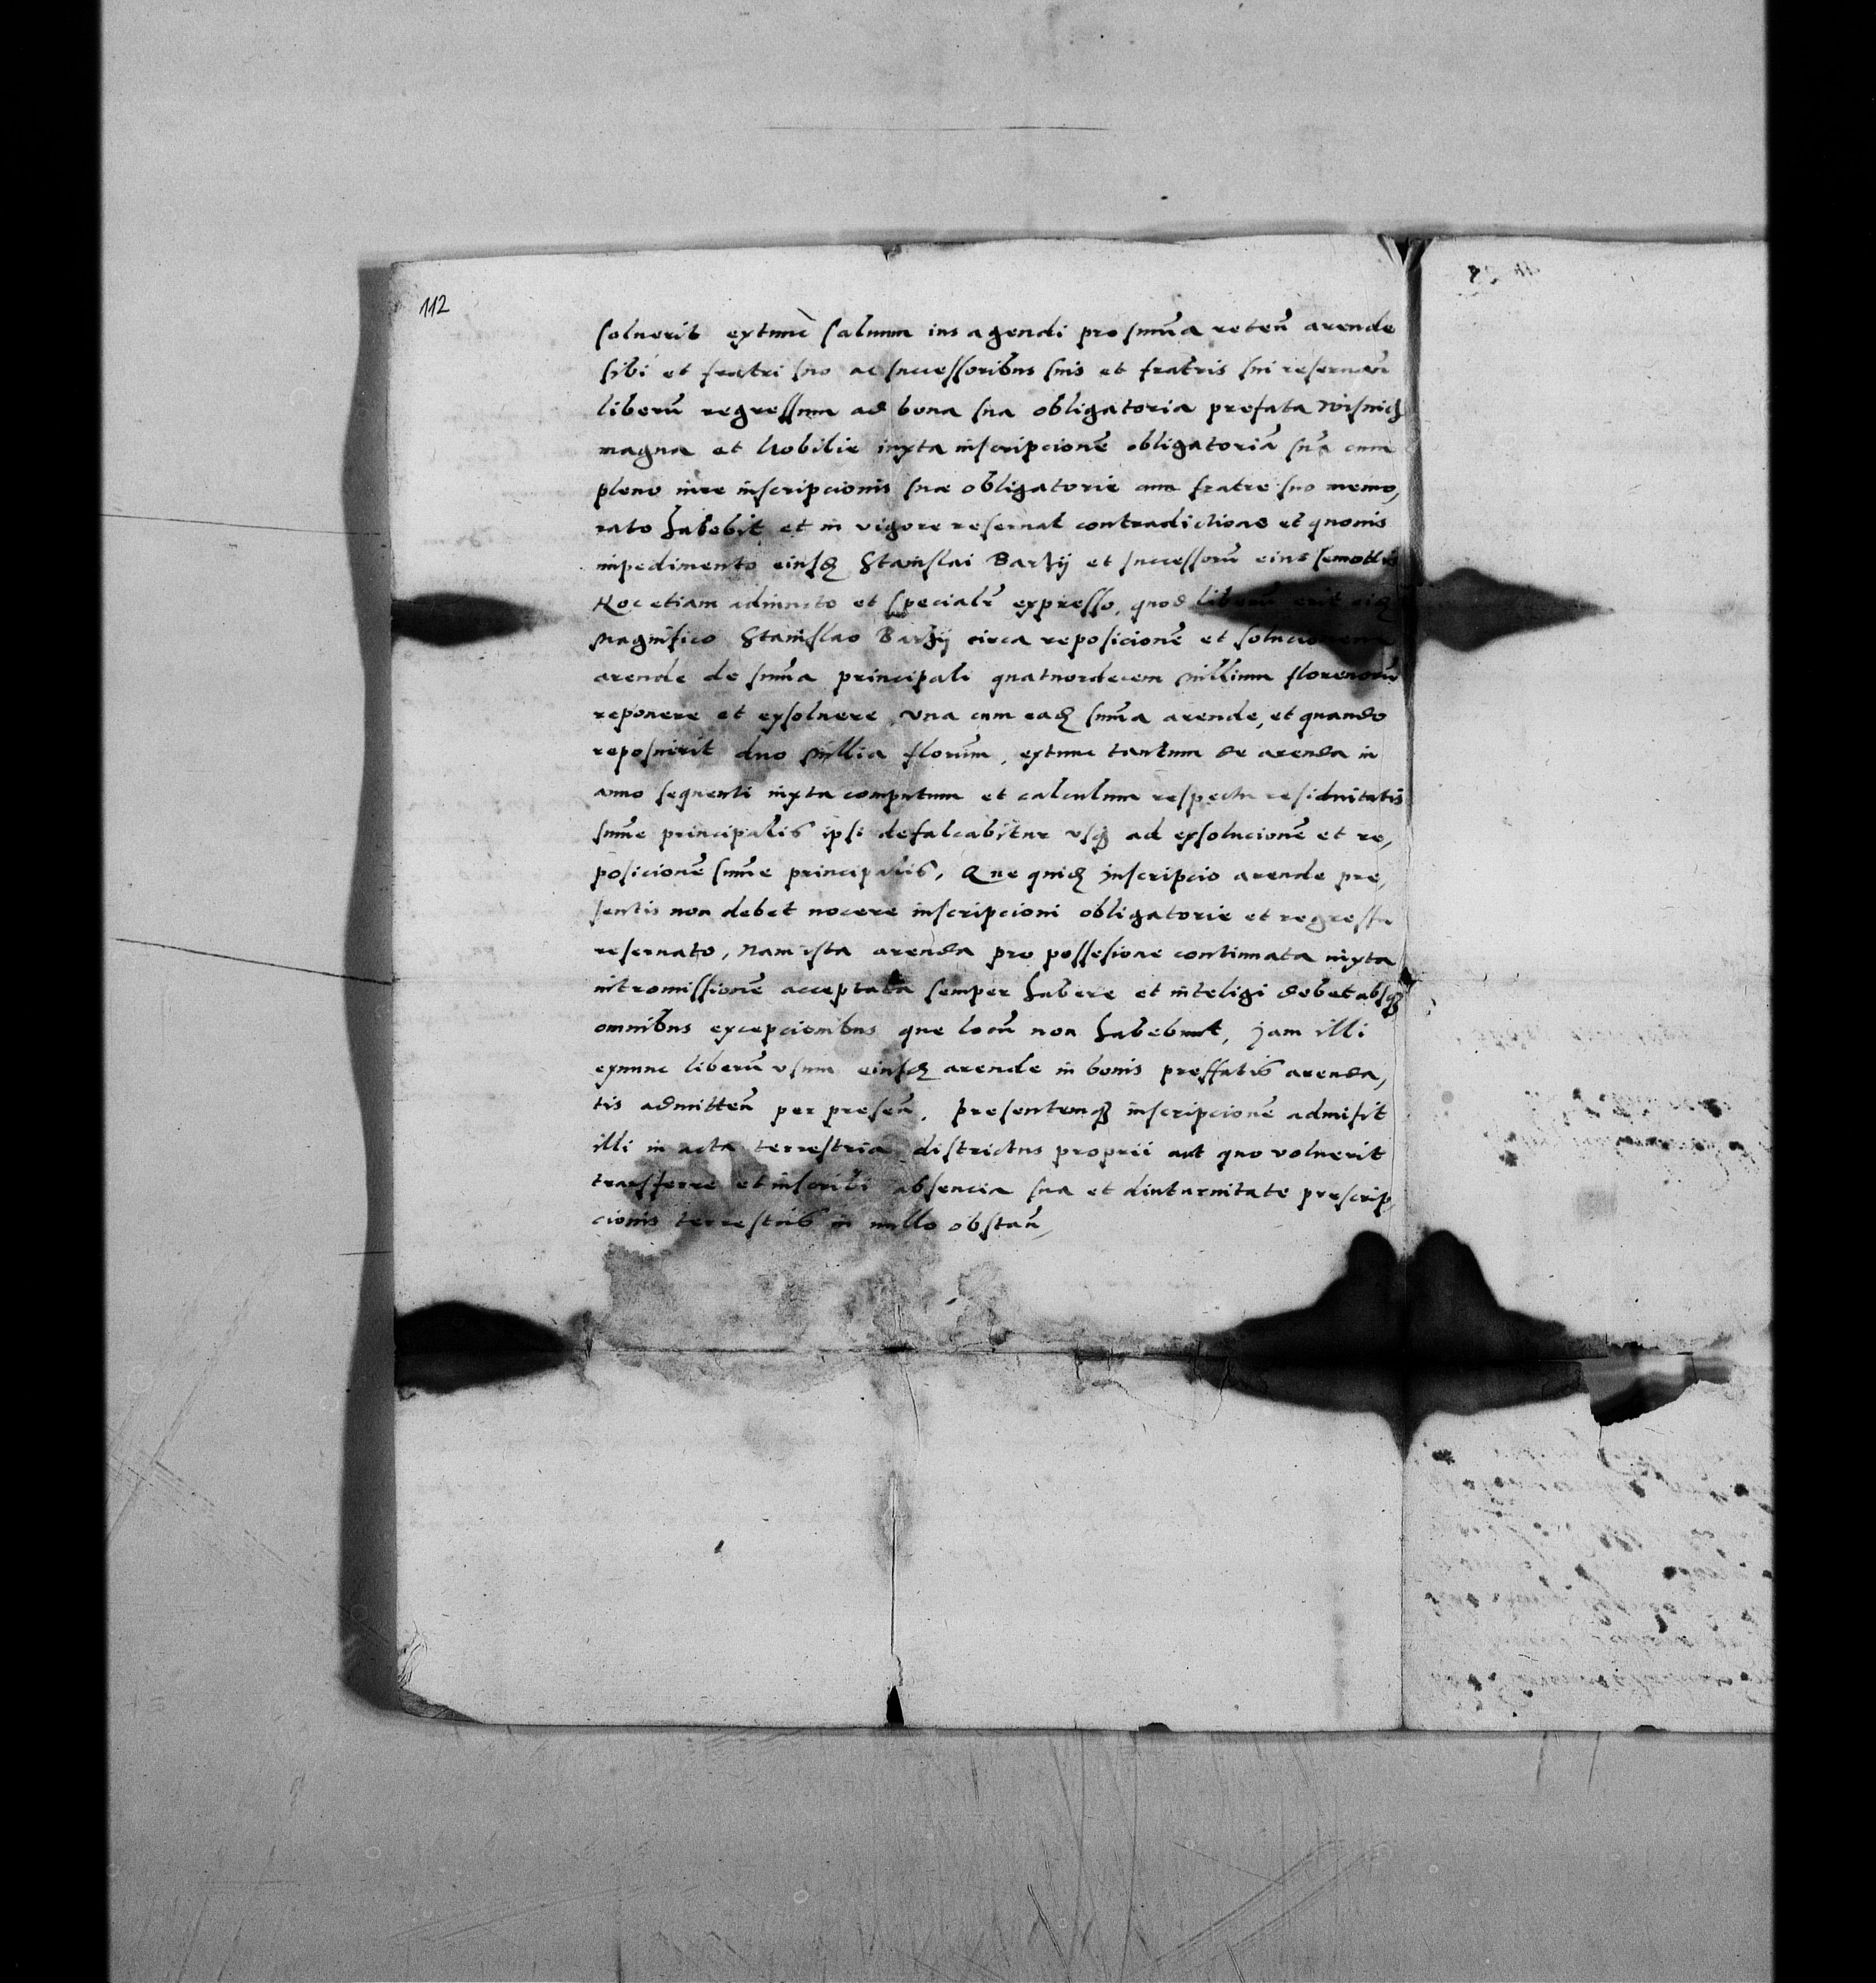 112
solverit extunc salvum ius agendi pro sūma reteñ arende
sibi et fratri suo ac successoribus suis et fratris sui reservañ
liberū regressum ad bona sua obligatoria prefata Wisnicz
magna et Kobilie iuxta inscripcionē obligatoriā suā cum
pleno iure inscripcionis suæ obligatorie cum fratre suo memo,
rato habebit et in vigore reservat contradictione et quovis
impedimento eiusdē Stanislai Barzij et successorū eius semotis
Hoc etiam adiuncto et specialr̄ expresso, quod liberū erit eidē
Magnifico Stanislao Barzij circa reposicionē et solucionem
arende de sūma principali quatuordecem Millium florenorū
reponere et exsolvere, una cum eadē sūma arende, et quando
reposuerit duo Millia florum̄, extunc tantum de arenda in
anno sequenti iuxta computum et calculum respectu residuitatis
sūme principalis ipsi defalcabitur usq̨ ad exsolucionē et re,
posicionē sūme principalis, Que quidē inscripcio arende pre,
sentis non debet nocere inscripcioni obligatorie et regressu
reservato, Nam ista arenda pro possesione continuata iuxta
intromissionē acceptata semper habere et inteligi debet absq̨
omnibus excepcionibus que locū non habebunt, Jam illi
exnunc liberū usum eiusdē arende in bonis preffatis arenda,
tis admitteñ per preseñ. Presentemq̨ inscripcionē admisit
illi in acta terrestria districtus proprii aut quo voluerit
transferre et inscribi absencia sua et diuturnitate prescrip,
cionis terrestris in nullo obstañ,